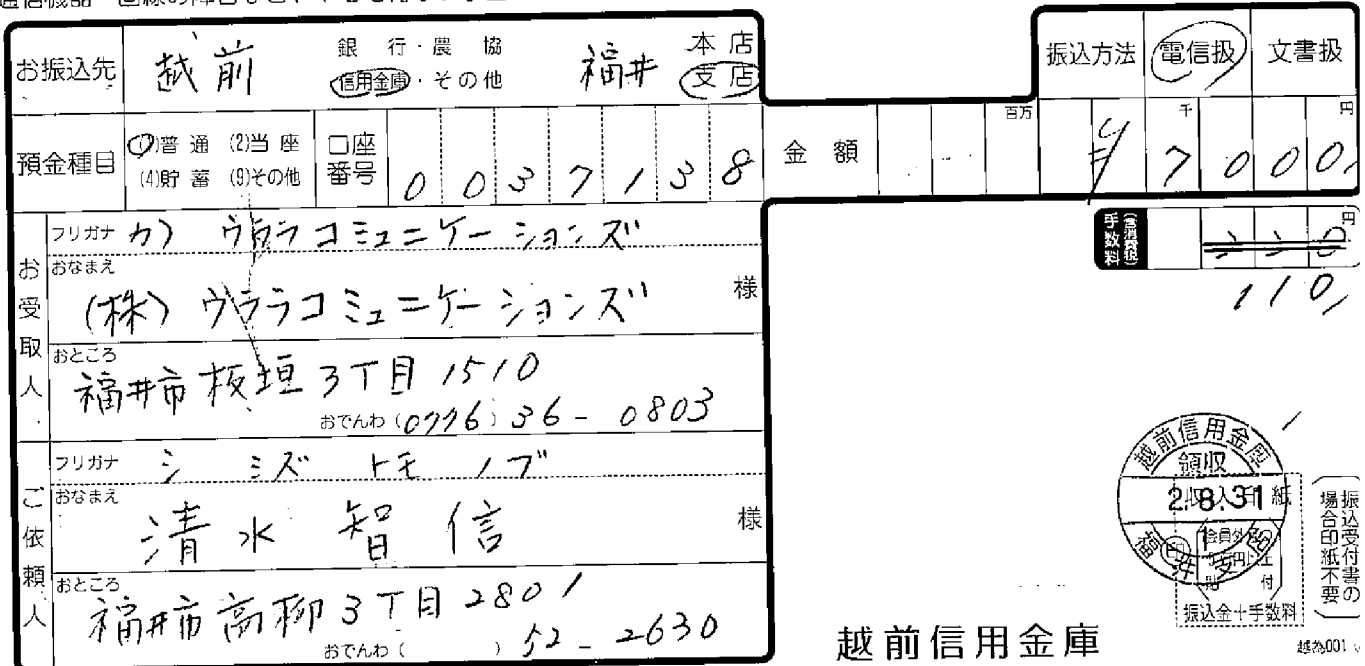 お振込先 越前 銀行・農協 信用金庫・その他 福井 本店 支店 振込方法 電信扱 文書扱
預金種目 (1)普通 (2)当座 (4)貯蓄 (9)その他 口座番号 0037138 金額 百万 千 円 ¥7000
手数料 (含消費税) 円 220
110
お受取人
フリガナ カ) ウララコミュニケーションズ
おなまえ (株)ウララコミュニケーションズ 様
おところ 福井市板垣3丁目1510
おでんわ (0776) 36-0803
ご依頼人
フリガナ シミズ トモノブ
おなまえ 清水智信 様
おところ 福井市高柳3丁目2801
おでんわ ( ) 52-2630
越前信用金庫
領収
2.8.31
福井支店
振込金+手数料
振込受付書の場合印紙不要
越前信用金庫
越為001